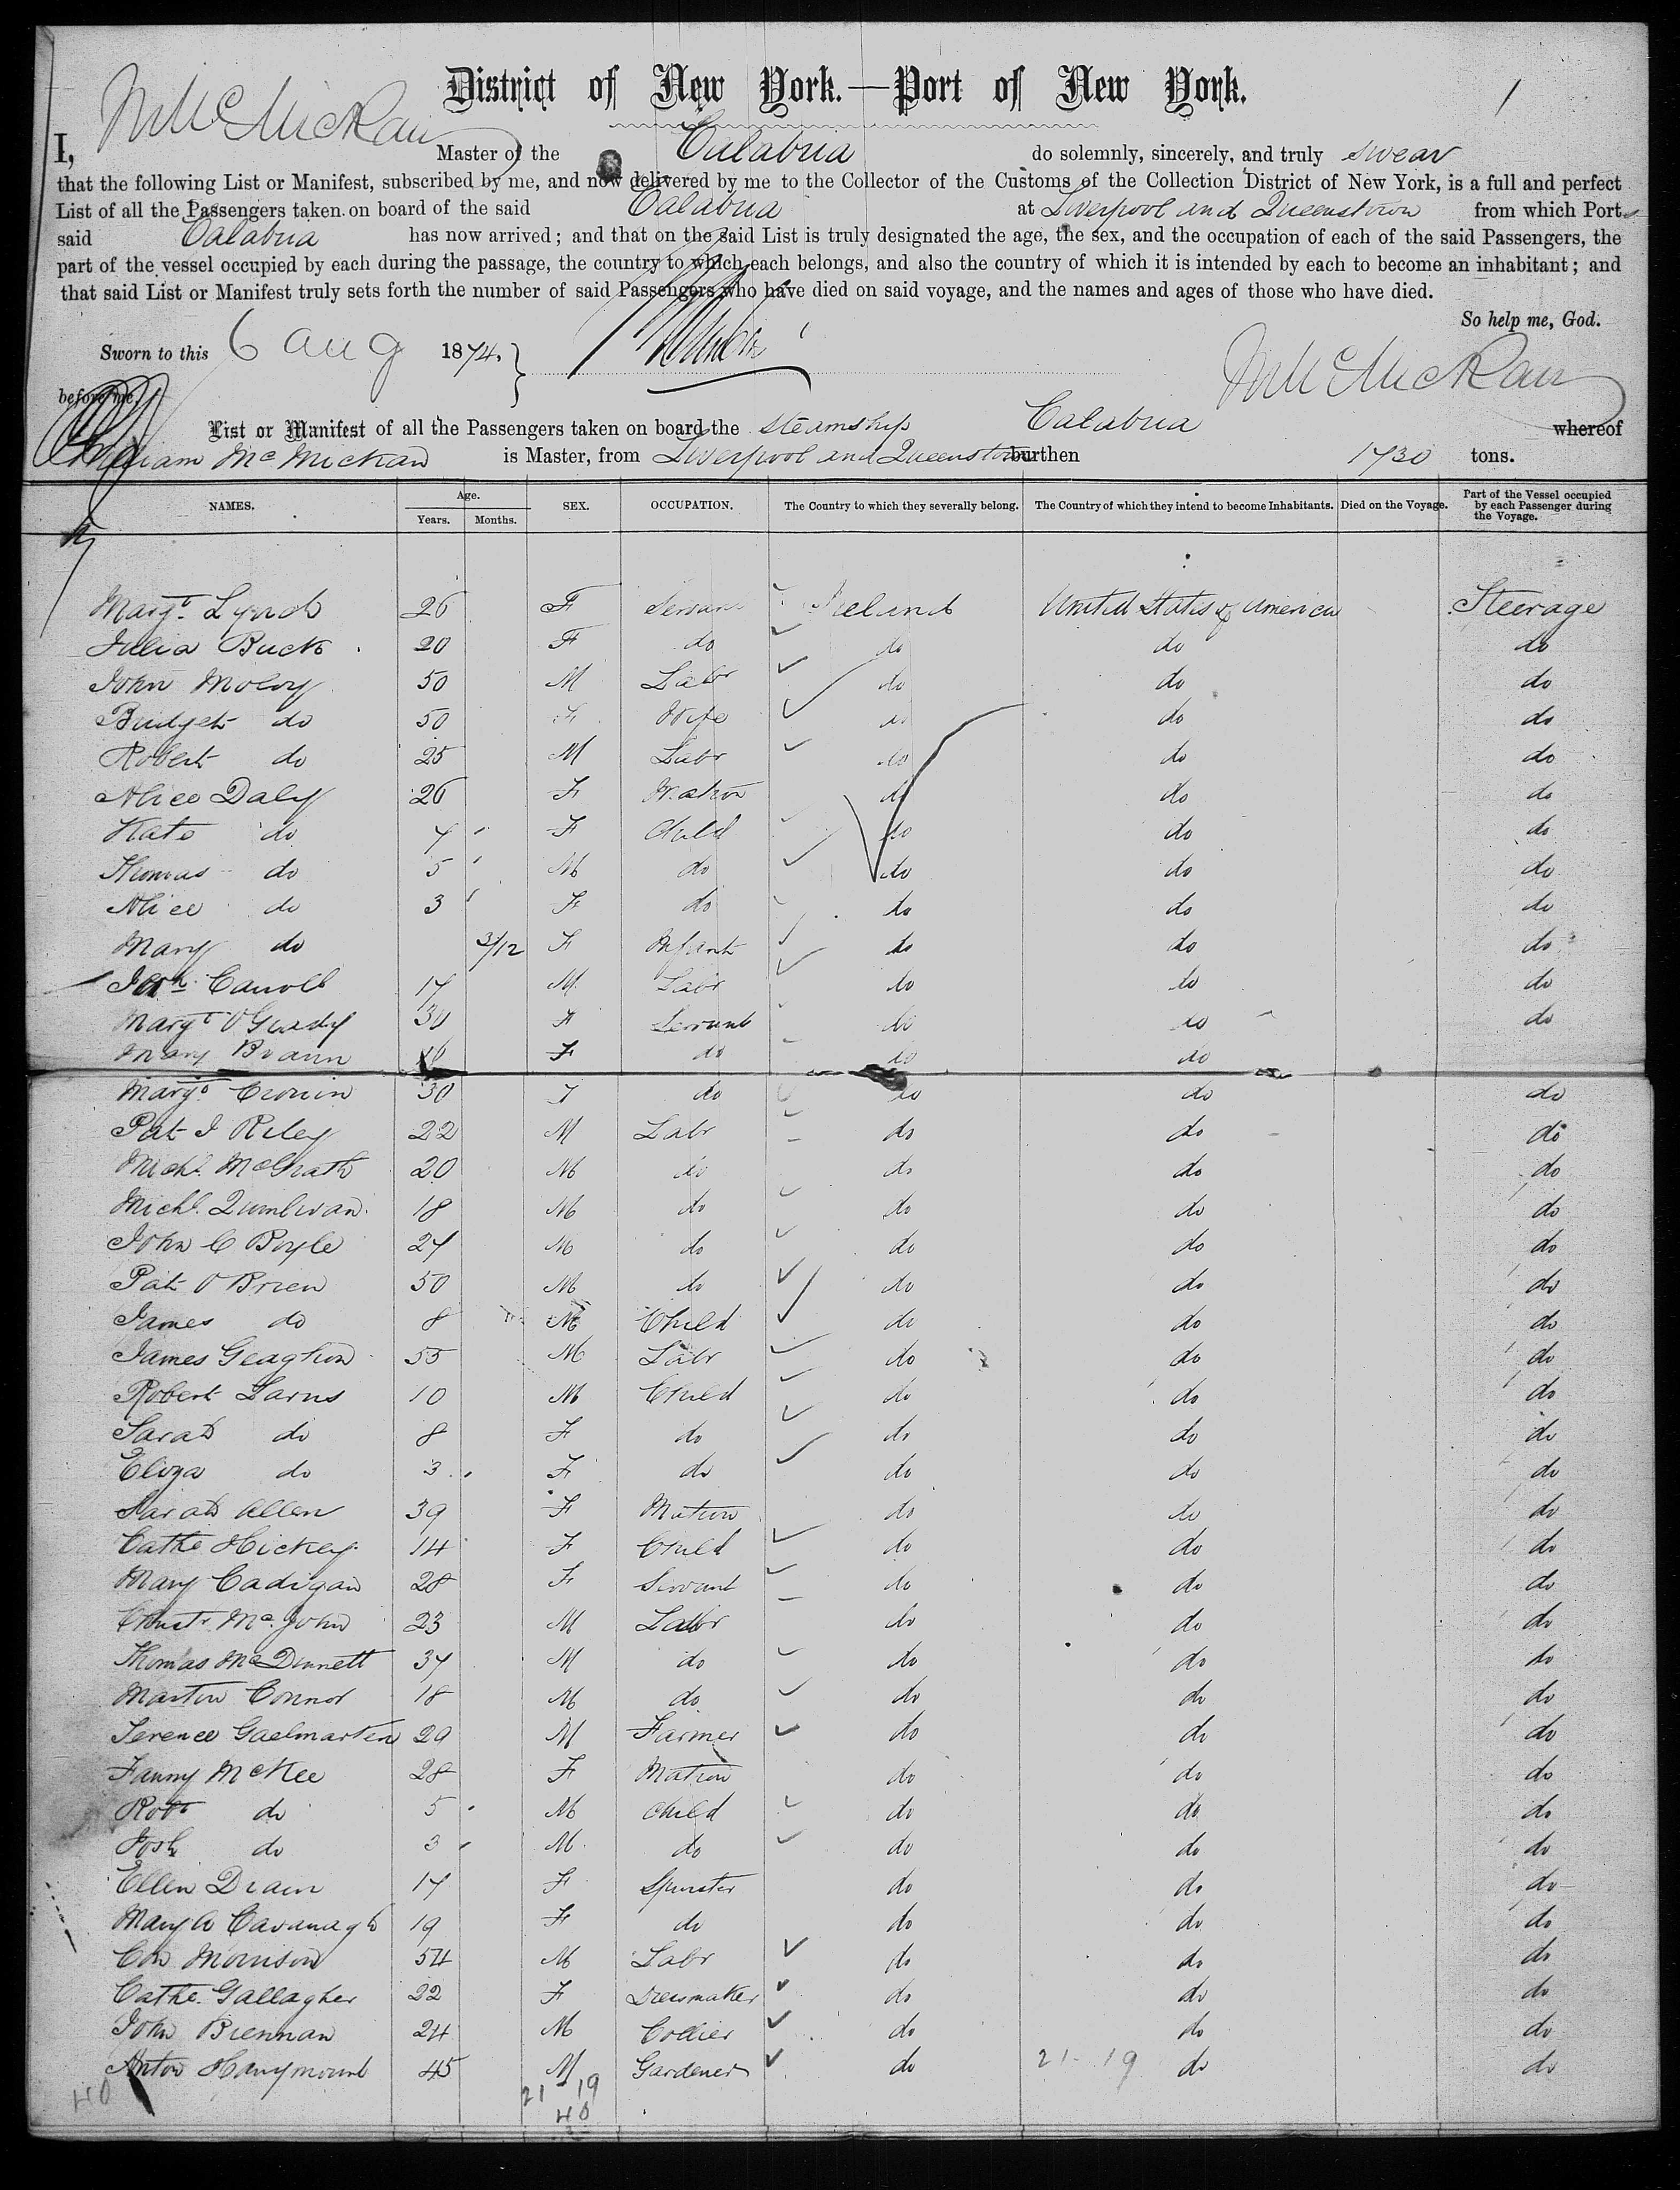 District of New York.—Port of New York.
1
I, Wm McMickan Master of the Calabria do solemnly, sincerely, and truly swear
that the following List or Manifest, subscribed by me, and now delivered by me to the Collector of the Customs of the Collection District of New York, is a full and perfect
List of all the Passengers taken on board of the said Calabria at Liverpool and Queenstown from which Ports
said Calabria has now arrived; and that on the said List is truly designated the age, the sex, and the occupation of each of the said Passengers, the
part of the vessel occupied by each during the passage, the country to which each belongs, and also the country of which it is intended by each to become an inhabitant; and
that said List or Manifest truly sets forth the number of said Passengers who have died on said voyage, and the names and ages of those who have died.
So help me, God.
Sworn to this 6 Aug 1874. Wm McMickan
before me,
List or Manifest of all the Passengers taken on board the Steamship Calabria whereof
William McMickan is Master, from Liverpool and Queenstown burthen 1730 tons.
NAMES. Age. Years. Months. SEX. OCCUPATION. The Country to which they severally belong. The Country of which they intend to become Inhabitants. Died on the Voyage. Part of the Vessel occupied by each Passenger during the Voyage.
Margt Lynch 26 F Servant Ireland United States of America Steerage
Julia Buck 20 F do do do do
John Moloy 50 M Labr do do do
Bridget do 50 F Wife do do do
Robert do 25 M Labr do do do
Alice Daly 26 F Matron do do do
Kate do 7 F Child do do do
Thomas do 5 M do do do do
Alice do 3 F do do do do
Mary do 3/12 F Infant do do do
Carroll 17 M Labr do do do
Margt O'Grady 30 F Servant do do do
Mary Braun F do do do
Margt Cronin 30 F do do do do
Pat J Riley 22 M Labr do do do
Michl McGrath 20 M do do do do
Michl Quinlivan 18 M do do do do
John C Boyle 27 M do do do do
Pat O Brien 50 M do do do do
James do 8 M Child do do do
James Geaghon 55 M Labr do do do
Robert Larns 10 M Child do do do
Sarah do 8 F do do do do
Eliza do 3 F do do do do
Sarah Allen 39 F Matron do do do
Cathe Hickey 14 F Child do do do
Mary Cadigan 28 F Servant do do do
Mc John 23 M Labr do do do
Thomas McDinnett 37 M do do do do
Martin Connor 18 M do do do do
Terence Gaelmarten 29 M Farmer do do do
Fanny McKee 28 F Matron do do do
Robt do 5 M Child do do do
Josh do 3 M do do do do
Ellen Drain 17 F Spinster do do do
Mary A Cavanagh 19 F do do do do
Con Morrison 54 M Labr do do do
Cathe Gallagher 22 F Dressmaker do do do
John Brennan 24 M Collier do do do
Anton Hanymount 45 M Gardener do 21-19 do do
40 21-19
40